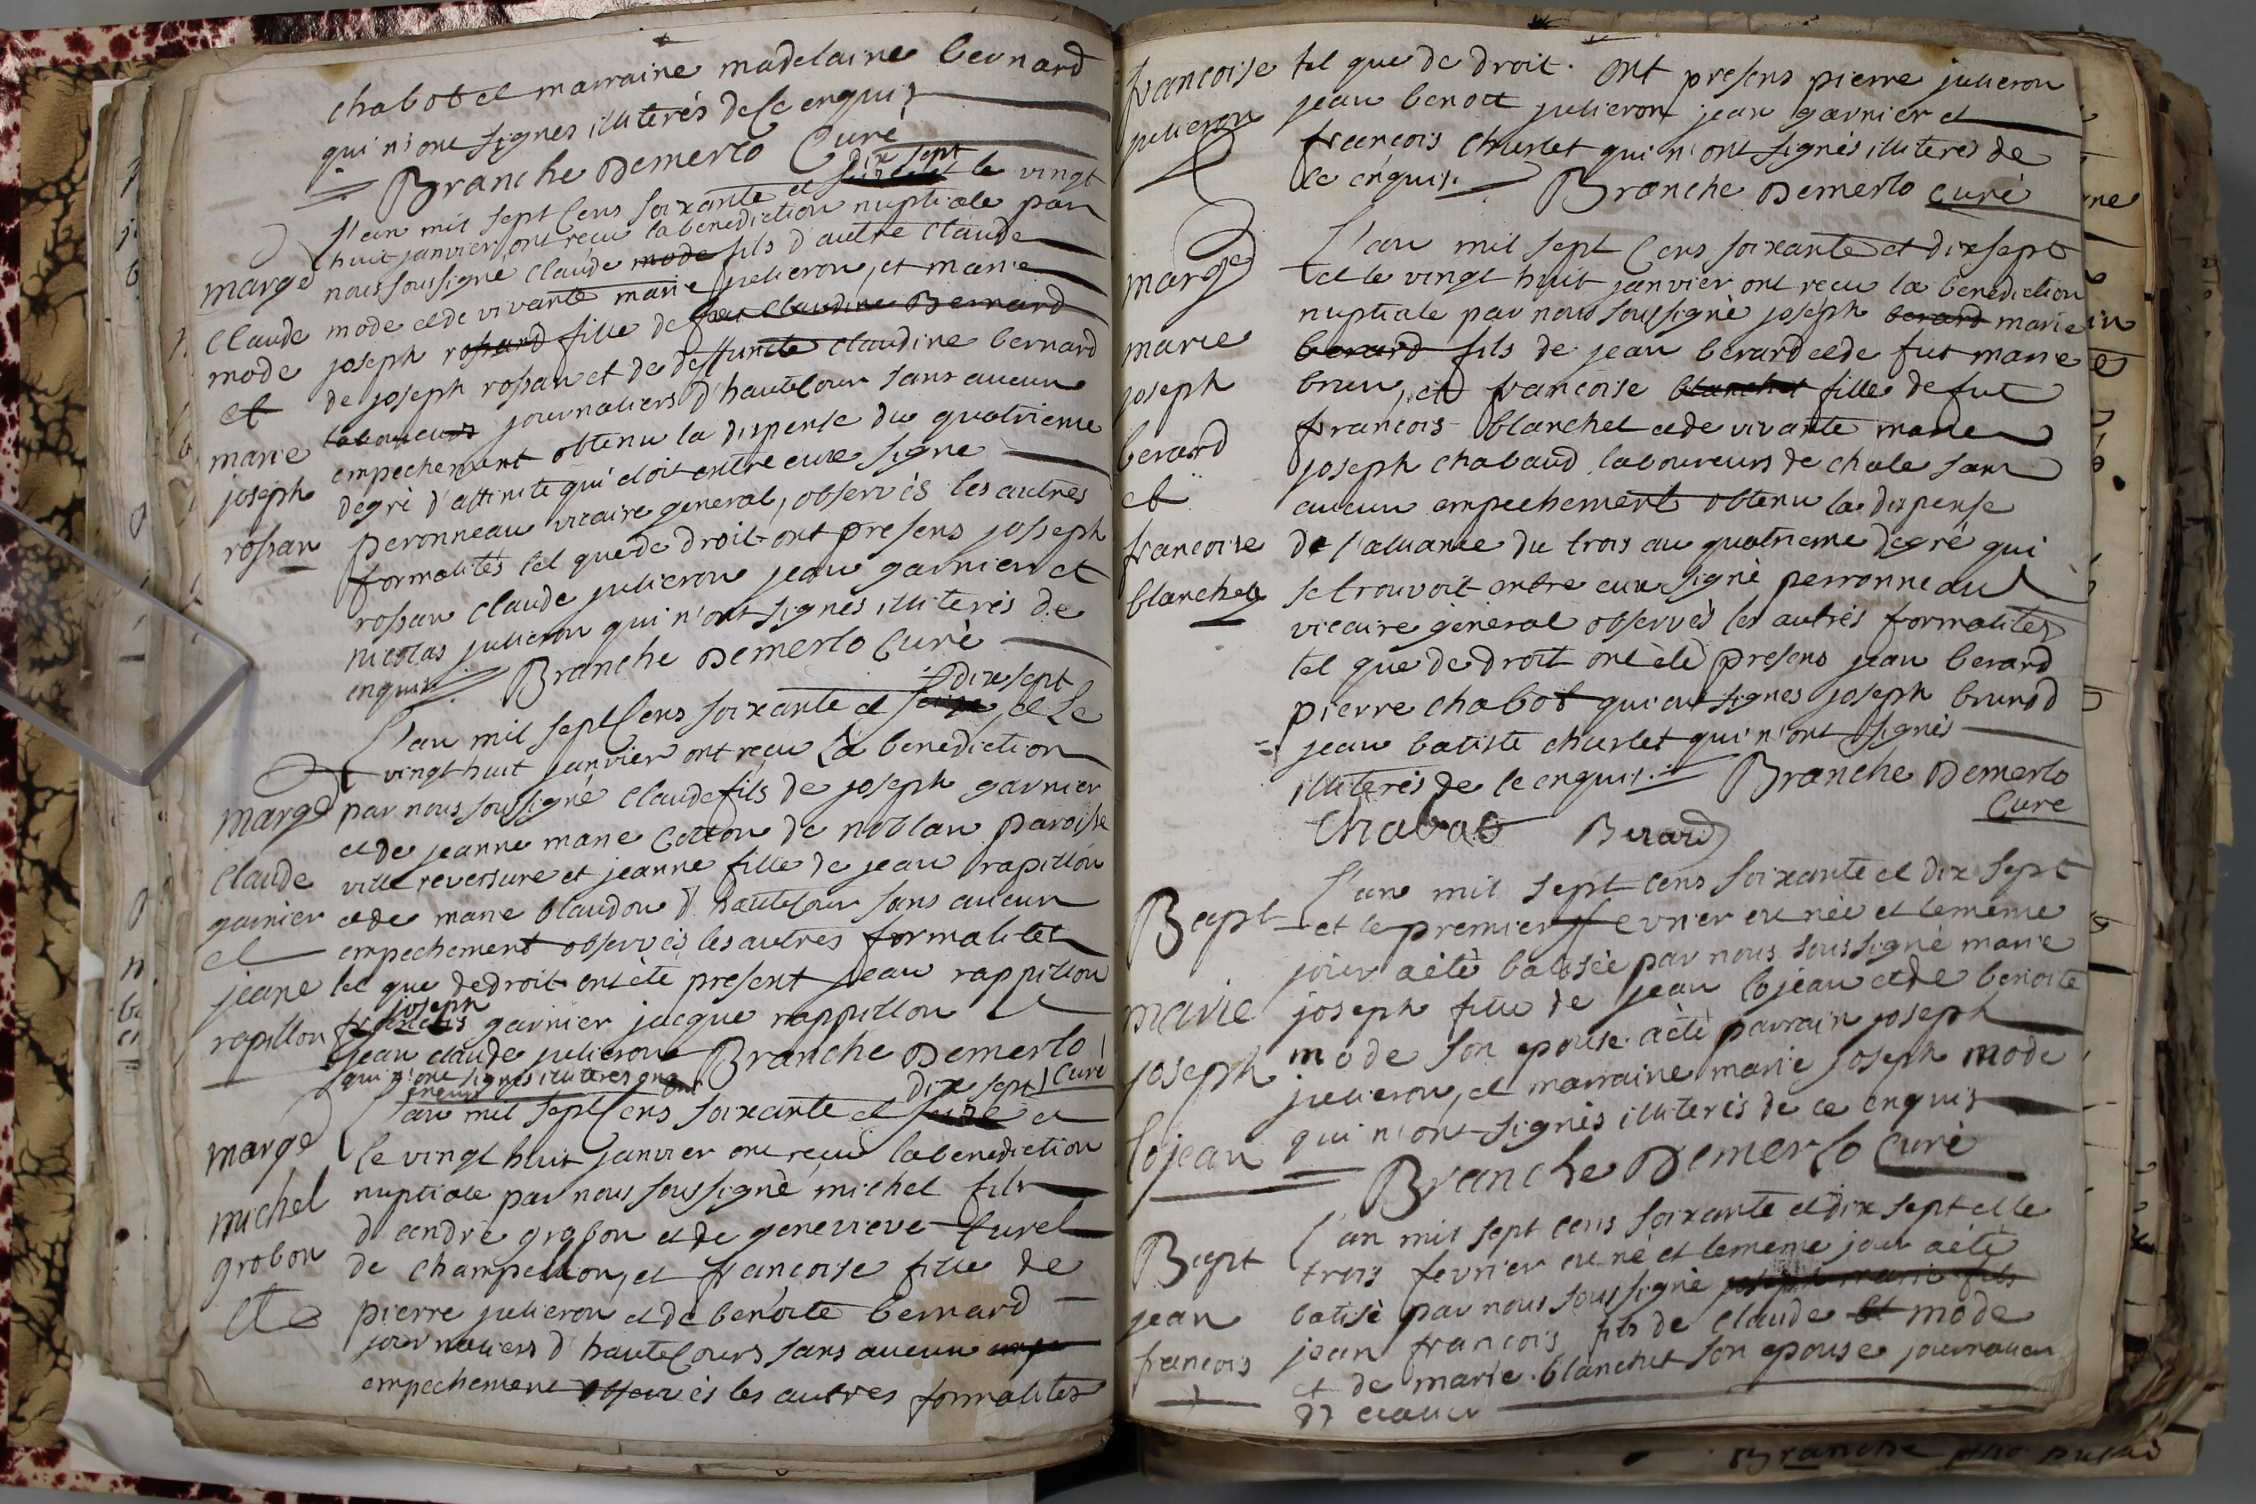 chabot et marraine madelaine bernard
qui n'ont signes illiterés de ce enquis
Branche Demerlo Curé
dix sept
L'an mil sept cens soixante et le vingt
huit janvier ont recu la benediction nuptiale par
nous soussigné Claude mode fils d'autre Claude
mode et de vivante marie julieron, et marie
joseph rossand fille de feu Claudine Bernard
de joseph rossan et de deffuncte claudine bernard
laboureurs journaliers d'hautecour sans aucun
empechement obtenu la dispense du quatrieme
degré d'affinité qui étoit entre eux signé
peronneau vicaire general, observés les autres
formalités tel que de droit ont presens josseph
rossan claude julieron jean garnier et
nicolas julieron qui n'ont signés illiterés de
enquis Branche Demerlo Curé
marge
Claude
mode
et
marie
joseph
rossan
dix sept
L'an mil sept cens soixante et seize, et le
vingt huit janvier ont recu la benediction
par nous soussigné Claude fils de joseph garnier
et de jeanne marie Cotton de noblan paroisse
ville reversure et jeanne fille de jean rapillon
et de marie blaudon d'hautecour sans aucun
empechement observés les autres formalites
tel que de droit ont été present jean rappillon
joseph
francois garnier jacque rappillon
jean claude julieron Branche Demerlo
qui n'ont signés illiteres
enquis
Curé
marge
Claude
garnier
et
jeane
rapillon
dix sept
L'an mil sept cens soixante et seize et
le vingt huit janvier ont recu la benediction
nuptiale par nous soussigné michel fils
d'andré grobon et de genevieve curel
de champellion, et francoise fille de
pierre julieron et de benoite bernard
journaliers d'hautecours sans aucun empe
empechement observés les autres formalités
marge
michel
grobon
et
francoise
julieron
tel que de droit. ont presens pierre julieron
jean benoit julieron jean garnier et
francois churlet qui n'ont signés illiteres de
ce enquis. Branche Demerlo curé
L'an mil sept cens soixante et dix sept
et le vingt huit janvier ont recu la benediction
nuptiale par nous soussigné joseph berard marie
berard fils de jean berard et de fut marie
brun, et francoise blanchet fille de fut
francois blanchet et de vivante marie
joseph chabaud laboureurs de chale sans
aucun empechement obtenu la dispense
de l'alliance du trois au quatrieme degré qui
se trouvoit entre eux signé perronneau
vicaire géneral observés les autres formalités
tel que de droit ont été presens jean berard
pierre chabot qui ont signes joseph brunod
jean batiste churlet qui n'ont signés
illiterés de ce enquis. Branche Demerlo
Curé
Chabot Berard
marge
marie
joseph
berard
et
francoise
blanchet
L'an mil sept cens soixante et dix sept
et le premier fevrier est née et le meme
jour a été batisée par nous soussigné marie
joseph fille de jean lojean et de benoite
mode son epouse. a été parrain joseph
julieron, et marraine marie joseph mode
qui n'ont signés illiterés de ce enquis
Branche Demerlo Curé
Bapt
marie
joseph
lojean
L'an mil sept cens soixante et dix sept et le
trois fevrier est né et le meme jour a été
batisé par nous soussigné joseph marie fils
jean francois fils de claude et mode
et de marie blanchet son epouse journalier
Bapt
jean
francois